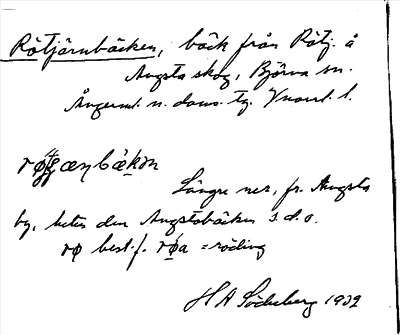 Rötjärnbäcken, bäck från Rötj. å
Angsta skog, Björna sn.
Ångerml. n. doms. tg. Vnorrl. l.
bækɷn
Längre ner, fr. Angsta
by, heter den Angstabäcken s.d.o.
rø best. f. røa = röding
H A Söderberg 1932